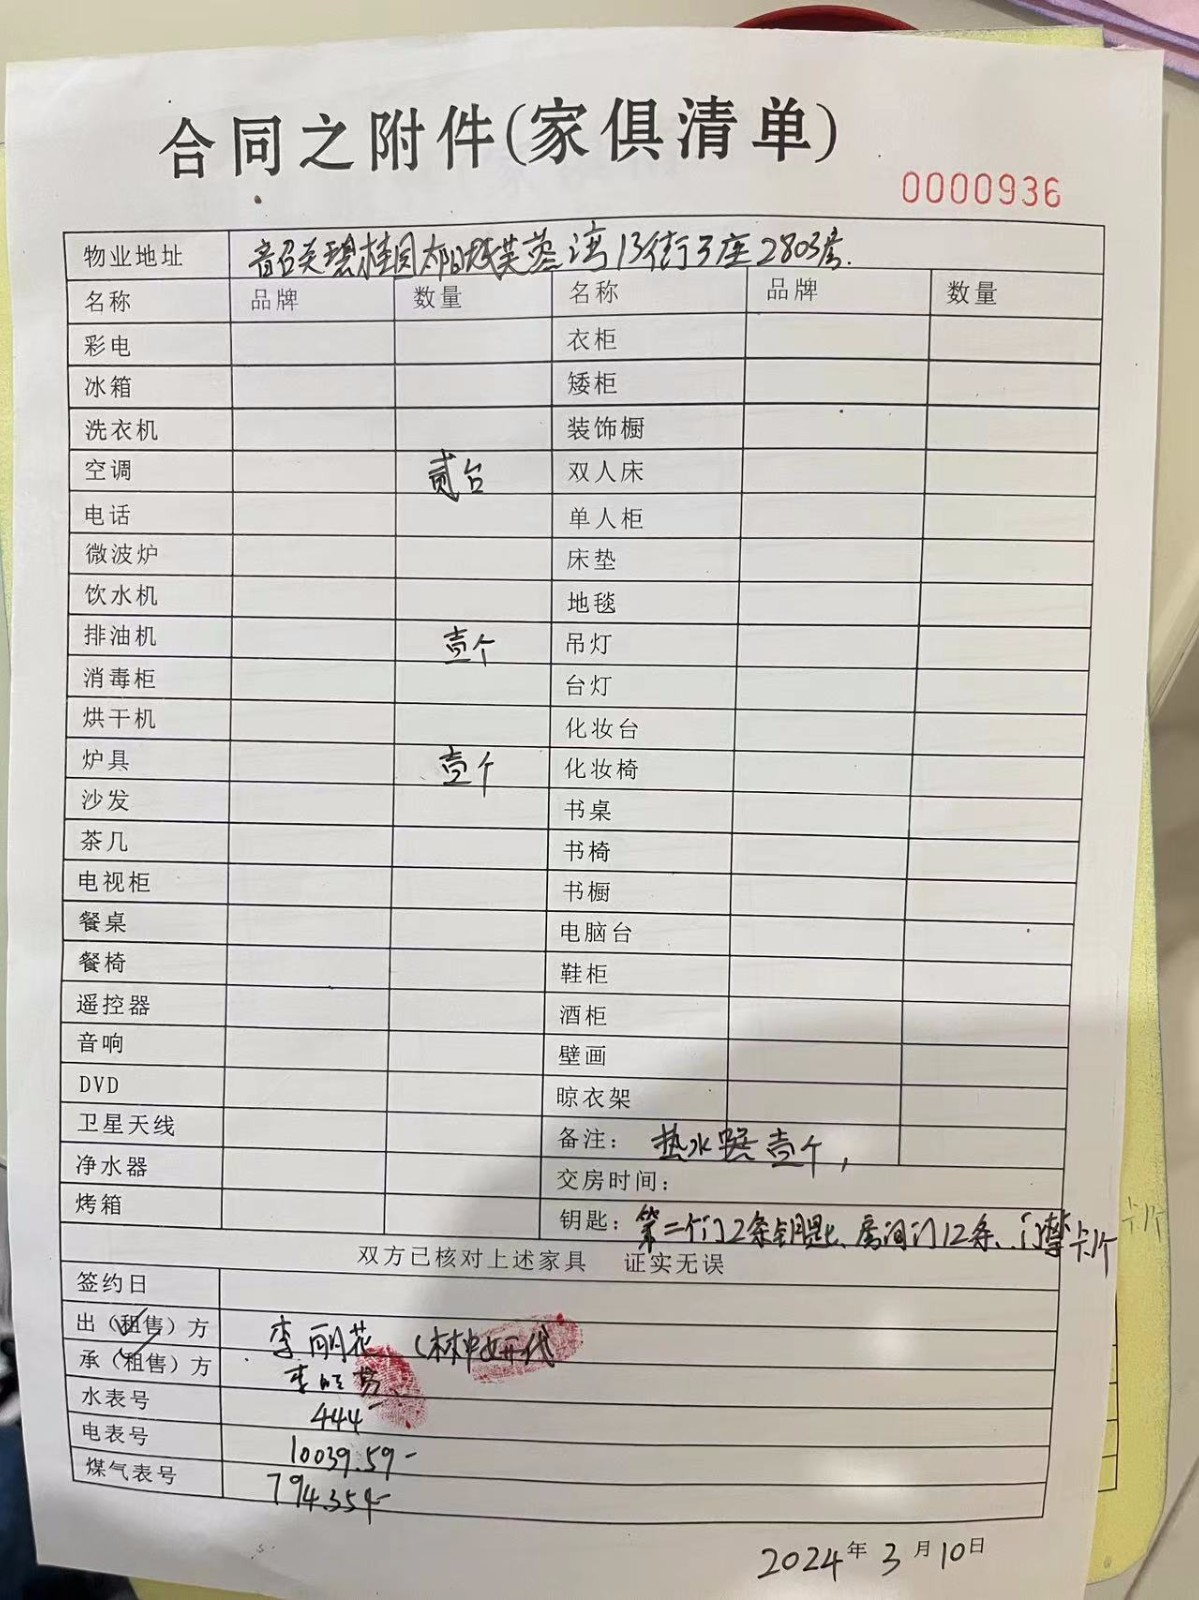 合同之附件(家俱清单)
0000936
物业地址 韶关碧桂园太阳城芙蓉湾13街3座2803房.
名称 品牌 数量 名称 品牌 数量
彩电 衣柜
冰箱 矮柜
洗衣机 装饰橱
空调 贰台 双人床
电话 单人柜
微波炉 床垫
饮水机 地毯
排油机 壹个 吊灯
消毒柜 台灯
烘干机 化妆台
炉具 壹个 化妆椅
沙发 书桌
茶几 书椅
电视柜 书橱
餐桌 电脑台
餐椅 鞋柜
遥控器 酒柜
音响 壁画
DVD 晾衣架
卫星天线 备注: 热水器壹个,
净水器 交房时间:
烤箱 钥匙: 第二个门2条钥匙、房间门12条、门 卡1个
双方已核对上述家具 证实无误
签约日
出(租售)方 李丽花 (林 妍代
承(租售)方 李
水表号 444
电表号 10039.59-
煤气表号 794.354-
2024年3月10日